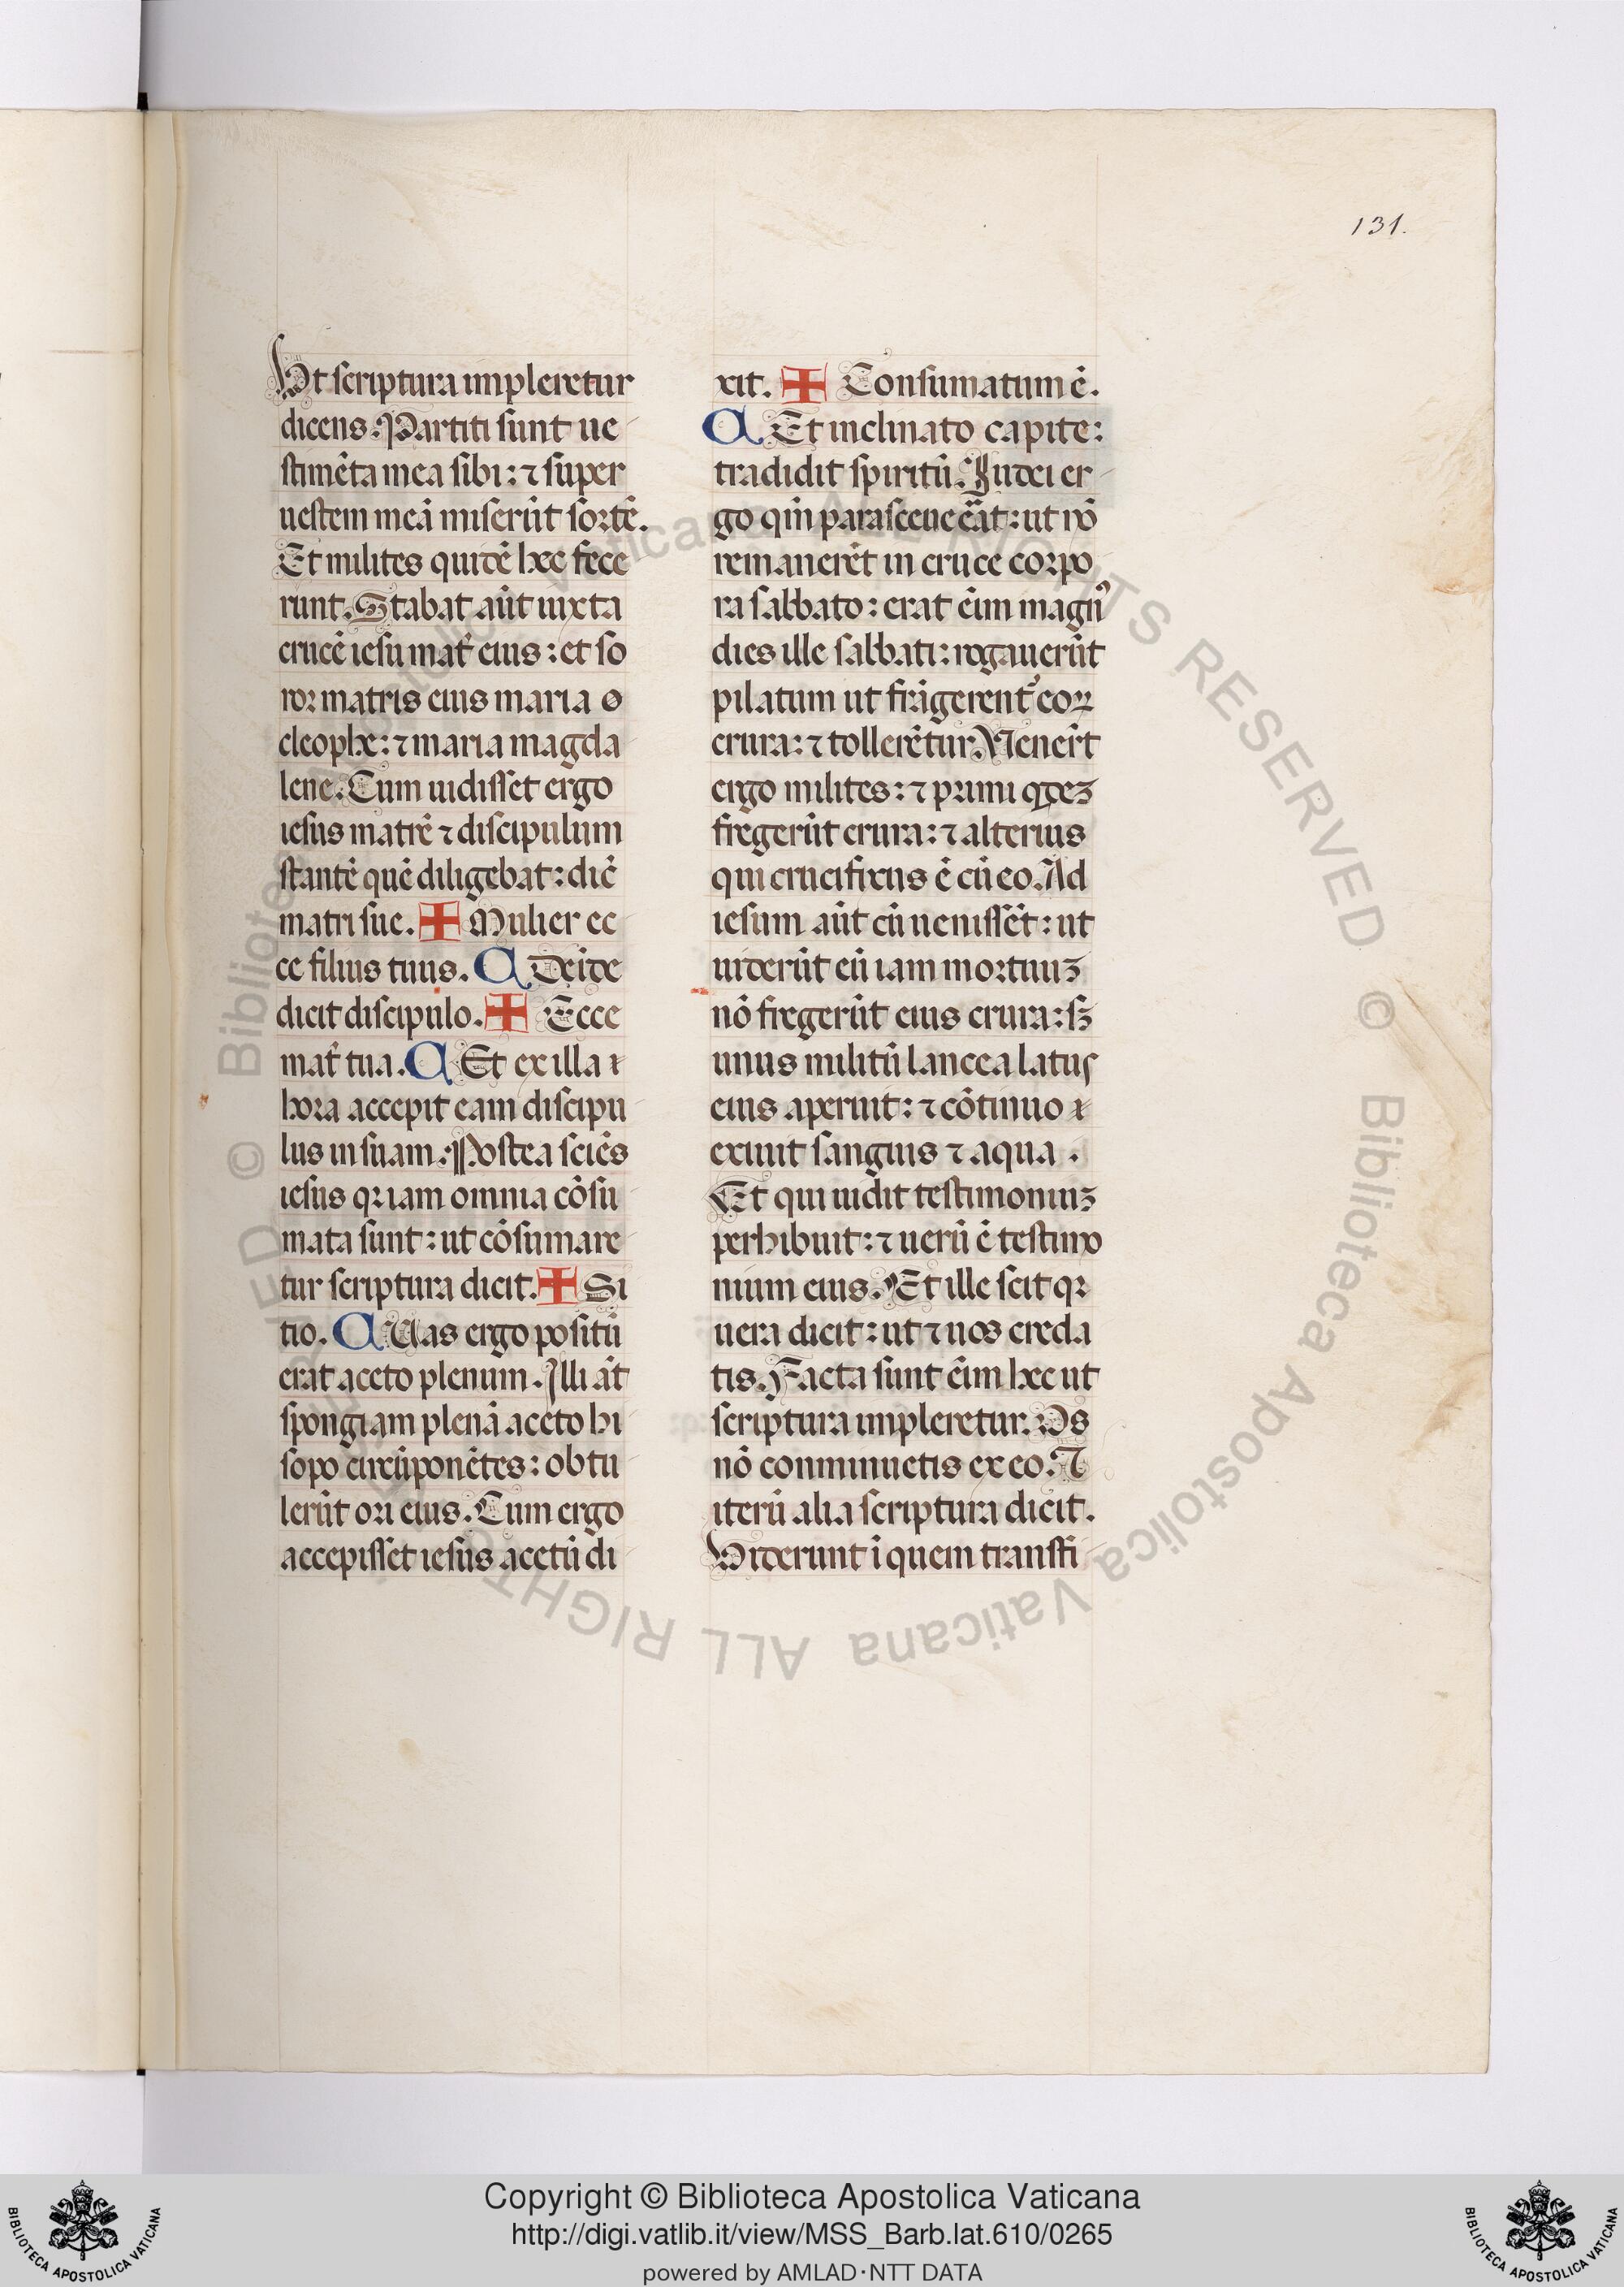 131.
Ut scriptura impleretur
dicens. Partiti sunt ue
stimēta mea sibi: ⁊ super
uestem meā miserūt sortē.
Et milites quidē hec fece
runt. Stabat aūt iuxta
crucē iesu mat̄ eius: et so
ror matris eius maria
cleophe: ⁊ maria magda
lene. Cum uidisset ergo
iesus matrē ⁊ discipulum
stantē quē diligebat: dic̄
matri sue. ✠ Mulier ec
ce filius tuus. C Deīde
dicit discipulo. ✠ Ecce
mat̄ tua. C Et ex illa
hora accepit eam discipu
lus in suam. Postea sciēs
iesus qꝛ iam omnia cōsu
mata sunt: ut cōsumare
tur scriptura dicit. ✠ Si
tio. C Uas ergo positū
erat aceto plenum. Illi āt
spongiam plenā aceto hi
sopo circūponētes: obtu
lerūt ori eius. Cum ergo
accepisset iesus acetū di
xit. ✠ Consumatum ē.
C Et inclinato capite:
tradidit spiritū. Iudei er
go qm̄ parasceue erat: ut nō
remanerēt in cruce corpo
ra sabbato: erat eīm magnꝰ
dies ille sabbati: rogauerūt
pilatum ut frāgerent᷑ eoꝝ
crura: ⁊ tollerētur. Uenert̄
ergo milites: ⁊ primi qͥdeꝫ
fregerūt crura: ⁊ alterius
qui crucifixus ē cū eo. Ad
iesum aūt cū uenissēt: ut
uiderūt eū iam mortuuꝫ
nō fregerūt eius crura: sꝫ
unus militū lancea latus
eius aperuit: ⁊ cōtinuo
exiuit sanguis ⁊ aqua.
Et qui uidit testimoniuꝫ
perhibuit: ⁊ uerū ē testimo
nium eius. Et ille scit qꝛ
uera dicit: ut ⁊ uos creda
tis. Facta sunt eīm hec ut
scriptura impleretur. Os
nō comminuetis ex eo. ⁊
iterū alia scriptura dicit.
Uiderunt ī quem transfi
Copyright © Biblioteca Apostolica Vaticana
http://digi.vatlib.it/view/MSS_Barb.lat.610/0265
powered by AMLAD·NTT DATA
BIBLIOTECA APOSTOLICA VATICANA
BIBLIOTECA APOSTOLICA VATICANA
© Biblioteca Apostolica Vaticana ALL RIGHTS RESERVED
© Biblioteca Apostolica Vaticana ALL RIGHTS RESERVED